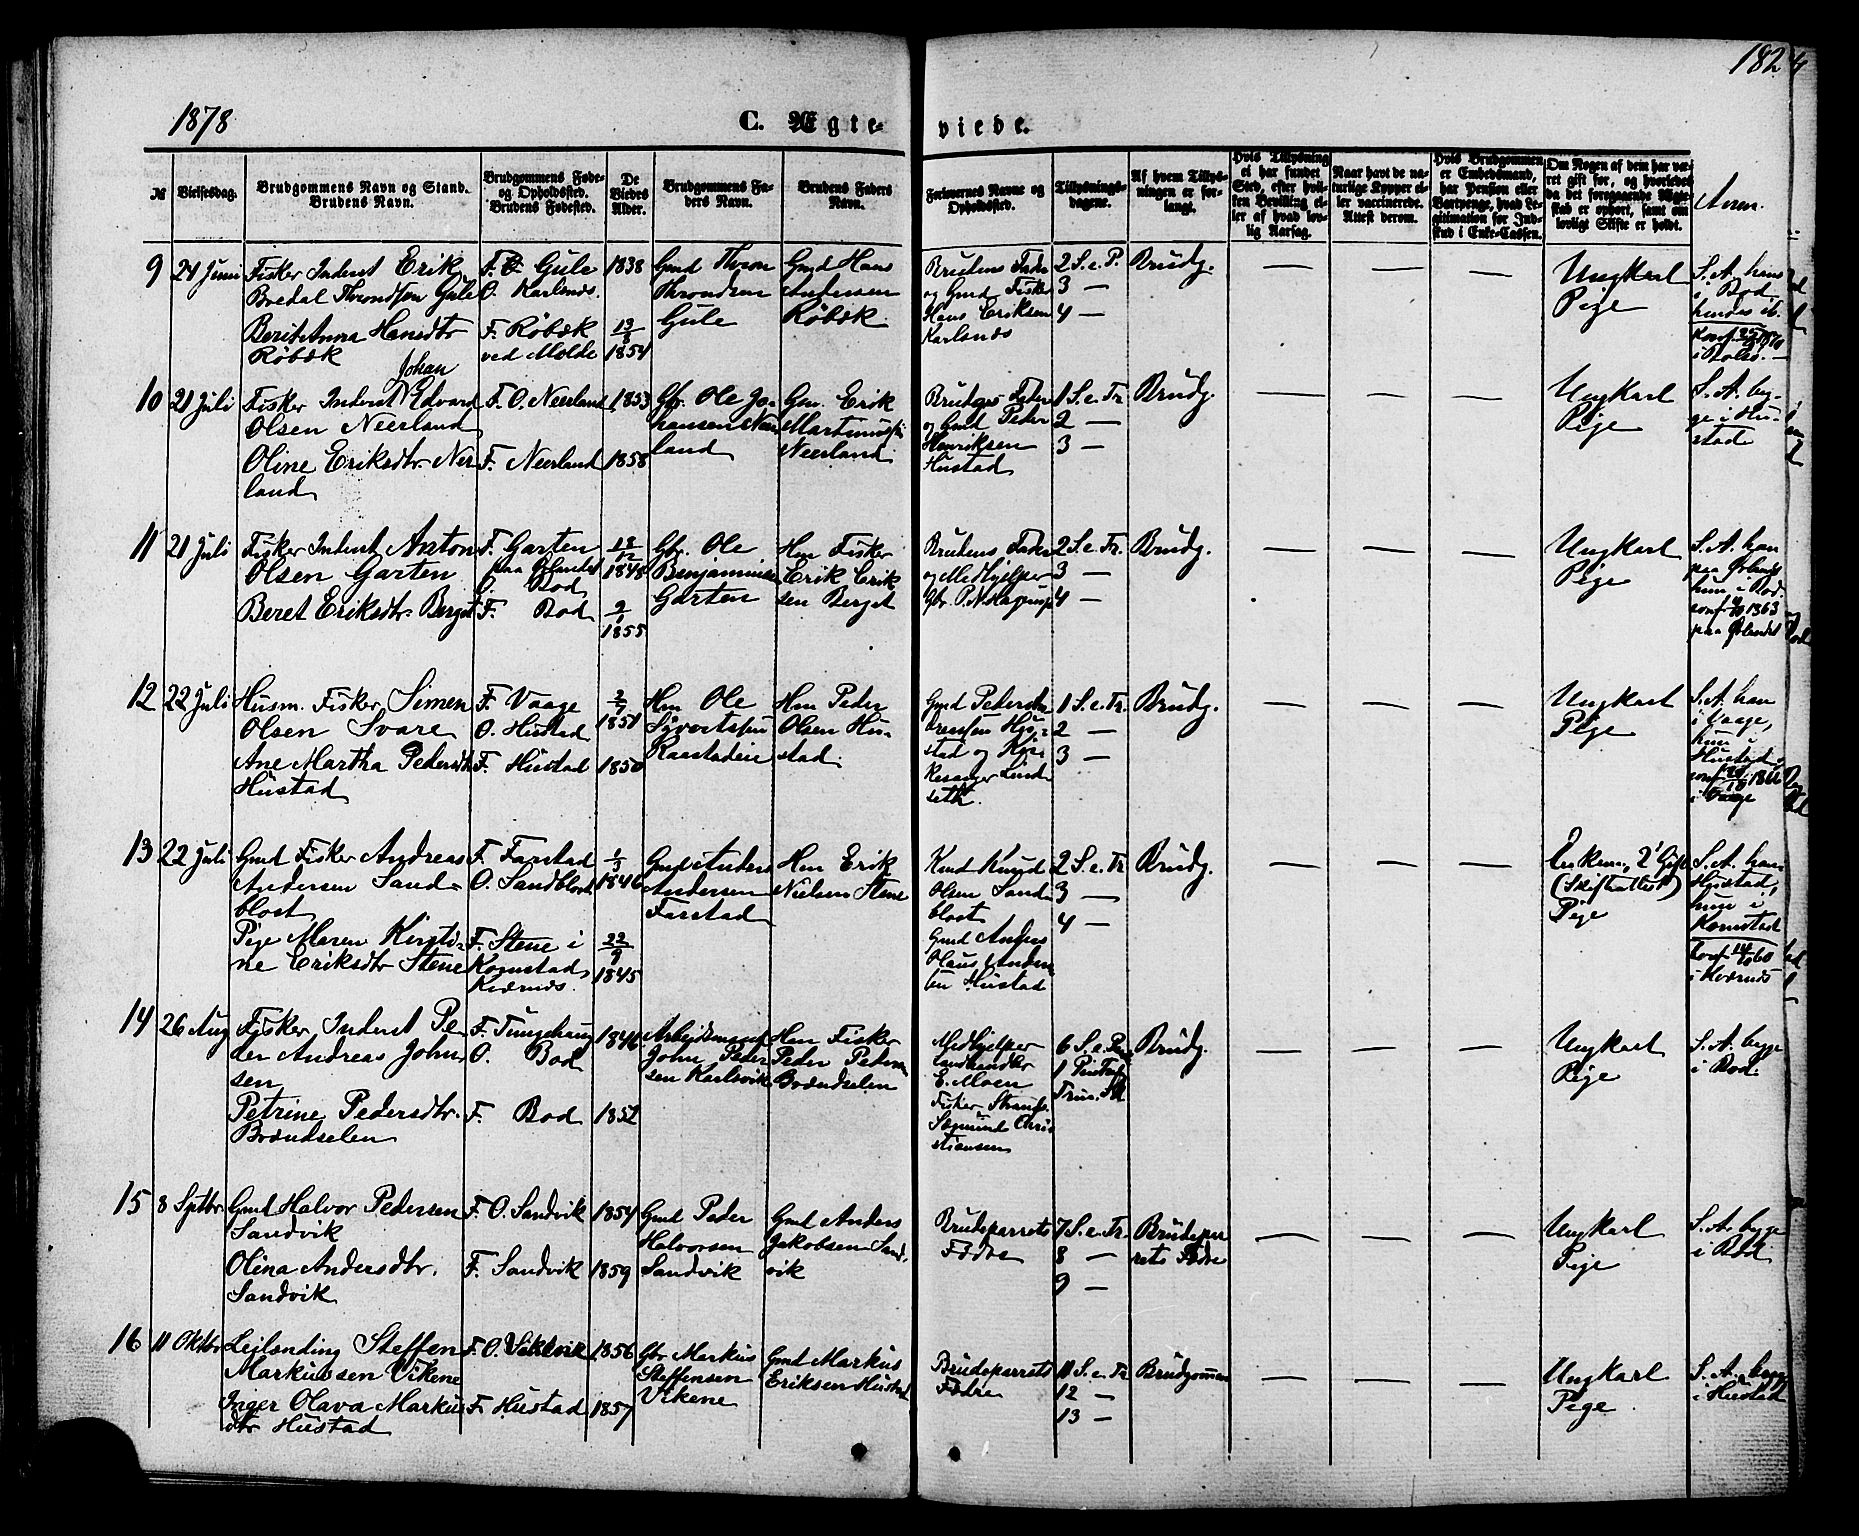 1878
C. Ægte-
viede.
182
№
Vielsesdag.
Brudgommens Navn og Stand.
Brudens Navn.
Brudgommens Føde-
og Opholdssted.
Brudens Fødested.
De
Viedes
Alder.
Brudgommens Fa-
ders Navn.
Brudens Faders
Navn.
Forlovernes Navne og
Opholdssted.
Tillysnings-
dagene.
Af hvem Tillys-
ningen er for-
langt.
Hvis Tillysning
ei har fundet
Sted, efter hvil-
ken Bevilling el-
ler af hvad lov-
lig Aarsag.
Naar havt de na-
turlige Kopper el-
ler vaccinerede.
Attest derom.
Hvis Brudgommen
er Embedsmand,
har Pension eller
Vartpenge, hvad Le-
gitimation for Ind-
skud i Enke-Cassen.
Om Nogen af dem har væ-
ret gift før, og hvorledes
da det foregaaende Ægte-
skab er ophørt, samt om
lovligt Skifte er holdt.
Anm.
9 24 Juni Fisker Inderst Erik
Bredal Throndsen Gule
Berit Anna Hansdtr
Røbæk
F. Gule
O. Karlsnds.
F. Røbæk
ved Molde
1838
13/8
1854
Gmd Thron
Throndsen
Gule
Gmd Hans
Andersen
Røbæk
Brudens Fader
og Gmd Fisker
Hans Eriksen
Karlsnds
2 S. e. P.
3 —
4 —
Brudg.
— — —
Ungkarl
Pige
S. A. han
i Bod
hendes ib.
10 21 Juli Fisker Inderst Johan Edvard
Olsen Neerland
Oline Eriksdtr. Ner
land
F. O. Neerland
F. Neerland
1853
1858
Gbr. Ole Jo-
hansen Neer
land
Gm. Erik
Martinusen
Neerland
Brudens Fader
og Gmd Peder
Henriksen
Hustad
1 S. e. Tr.
2 —
3 —
Brudg.
— — —
Ungkarl
Pige
S. A. byg-
ge i Hu-
stad
11 21 Juli Fisker Inderst Anton
Olsen Garten
Beret Eriksdtr. Berget
F. Garten
paa Ørlandet
O. Bod
F. Bod
18/12
1848
2/1
1855
Gbr. Ole
Benjaminsen
Garten
Hm Fisker
Erik Erik
sen Berget
Brudens Fader
og Medhjelper
Gbr. P. N. Hagerup
2 S. e. Tr.
3 —
4 —
Brudg.
— — —
Ungkarl
Pige
S. A. han
paa Ørland
hun i Bod.
conf 1863
paa Ørlandet
12 22 Juli Husm. Fisker Simen
Olsen Svare
Ane Martha Pedersdtr
Hustad
F. Vaage
O. Hustad
F. Hustad
2/7
1851
1850
Hm Ole
Syvertsen
Raastadeie
Hm Peder
Olsen Hu-
stad
1 S. e. Tr.
2 —
3 —
Brudg.
— — —
Ungkarl
Pige
S. A. han
i Vaage,
hun i
Hustad,
i Vaage
13 22 Juli Gmd Fisker Andreas
Andersen Sand-
blost
Pige Maren Kirsti-
ne Eriksdtr Stene
F. Farstad
O. Sandblost
F. Stene i
Kornstad,
Kværnes.
1846
22/9
1845
Gmd Anders
Andersen
Farstad
Hm Erik
Nielsen Stene
Gmd Knud
Olsen Sand
blost
Gmd Anders
Olaus Ander
sen Hustad
2 S. e. Tr.
3 —
4 —
Brudg.
— — —
Enkem., 2' Gift
(Skifteattest)
Pige
S. A. han
Hustad,
hun i
Kornstad
i Kværnes
14 26 Aug Fisker Inderst Pe
der Andreas John
sen
Petrine Pedersdtr.
Brændselen
F. Tungehaug
O. Bod
F. Bod
1846
1852
Arbeidsmand
John Peder
sen Karlsvik
Hm Fisker
Peder Pedersen
Brændselen
Medhjelper
Landhandler
E. Moen
Fisker Strands.
Sagmund Chri
stiansen
Brudg.
— — —
Ungkarl
Pige
S. A. begge
i Bod.
15 8 Septbr. Gmd Halvor Pedersen
Sandvik
Olina Andersdtr.
Sandvik
F. O. Sandvik
F. Sandvik
1854
1859
Gmd Peder
Halvorsen
Sandvik
Gmd Anders
Jakobsen Sand-
vik
Brudeparrets
Fædre
7 S. e. Tr.
8 —
9 —
Brudepar
rets Fædre
— — —
Ungkarl
Pige
S. A. begge
i Bod
16 11 Oktbr Leilending Steffen
Markussen Vikene
Inger Olava Markus
dtr Hustad
F. O. Vikene
F. Hustad
1856
1857
Gbr Markus
Steffensen
Vikene
Gmd Markus
Eriksen Hustad
Brudeparrets
Fædre
11 S. e. Tr.
12 —
13 —
Brudgommen
— — —
Ungkarl
Pige
S. A. begge
i Hustad